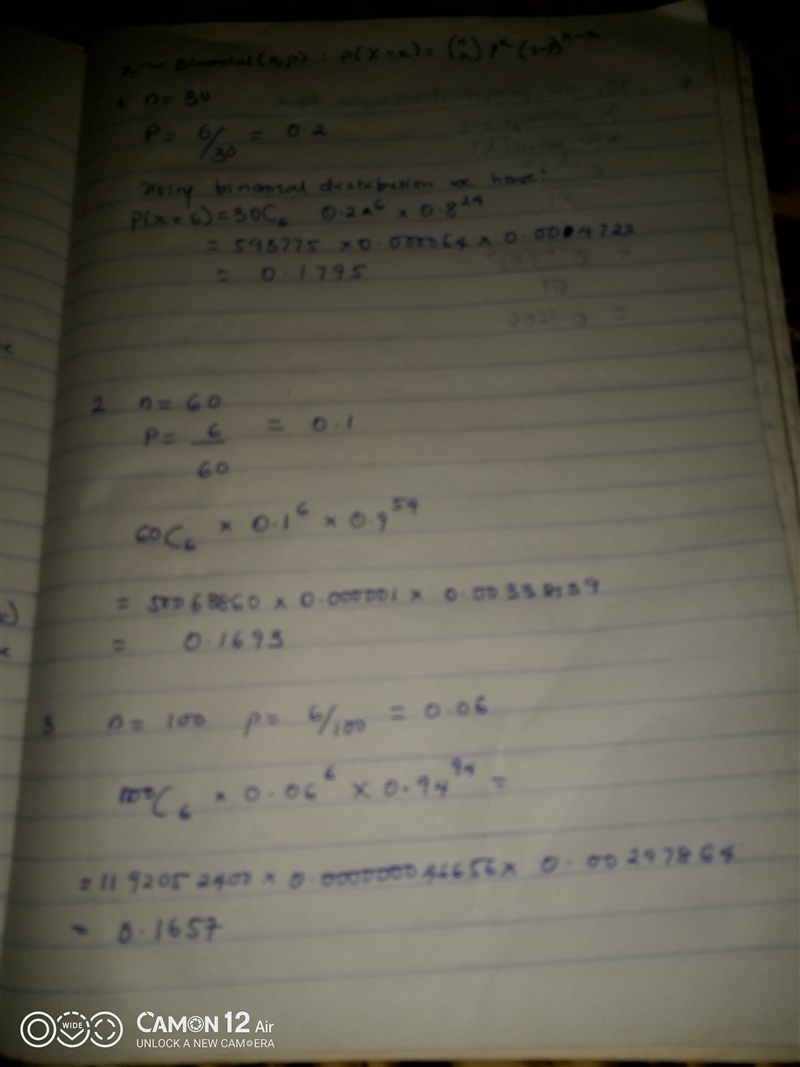 x ~ Binomial (n,p) : P(X=x) = (n x) p^x (1-p)^n-x
1 n = 30
P = 6/30 = 0.2
Using binomial distribution we have:
P(x=6) = 30C6 0.2^6 × 0.8^24
= 593775 × 0.000064 × 0.004722
= 0.1795
2 n = 60
P = 6/60 = 0.1
60C6 × 0.1^6 × 0.9^54
= 50063860 × 0.000001 × 0.00338139
= 0.1693
3 n = 100 p = 6/100 = 0.06
100C6 × 0.06^6 × 0.94^94 =
= 1192052400 × 0.000000046656 × 0.00297864
= 0.1657
WIDE
CAMON 12 Air
UNLOCK A NEW CAMERA